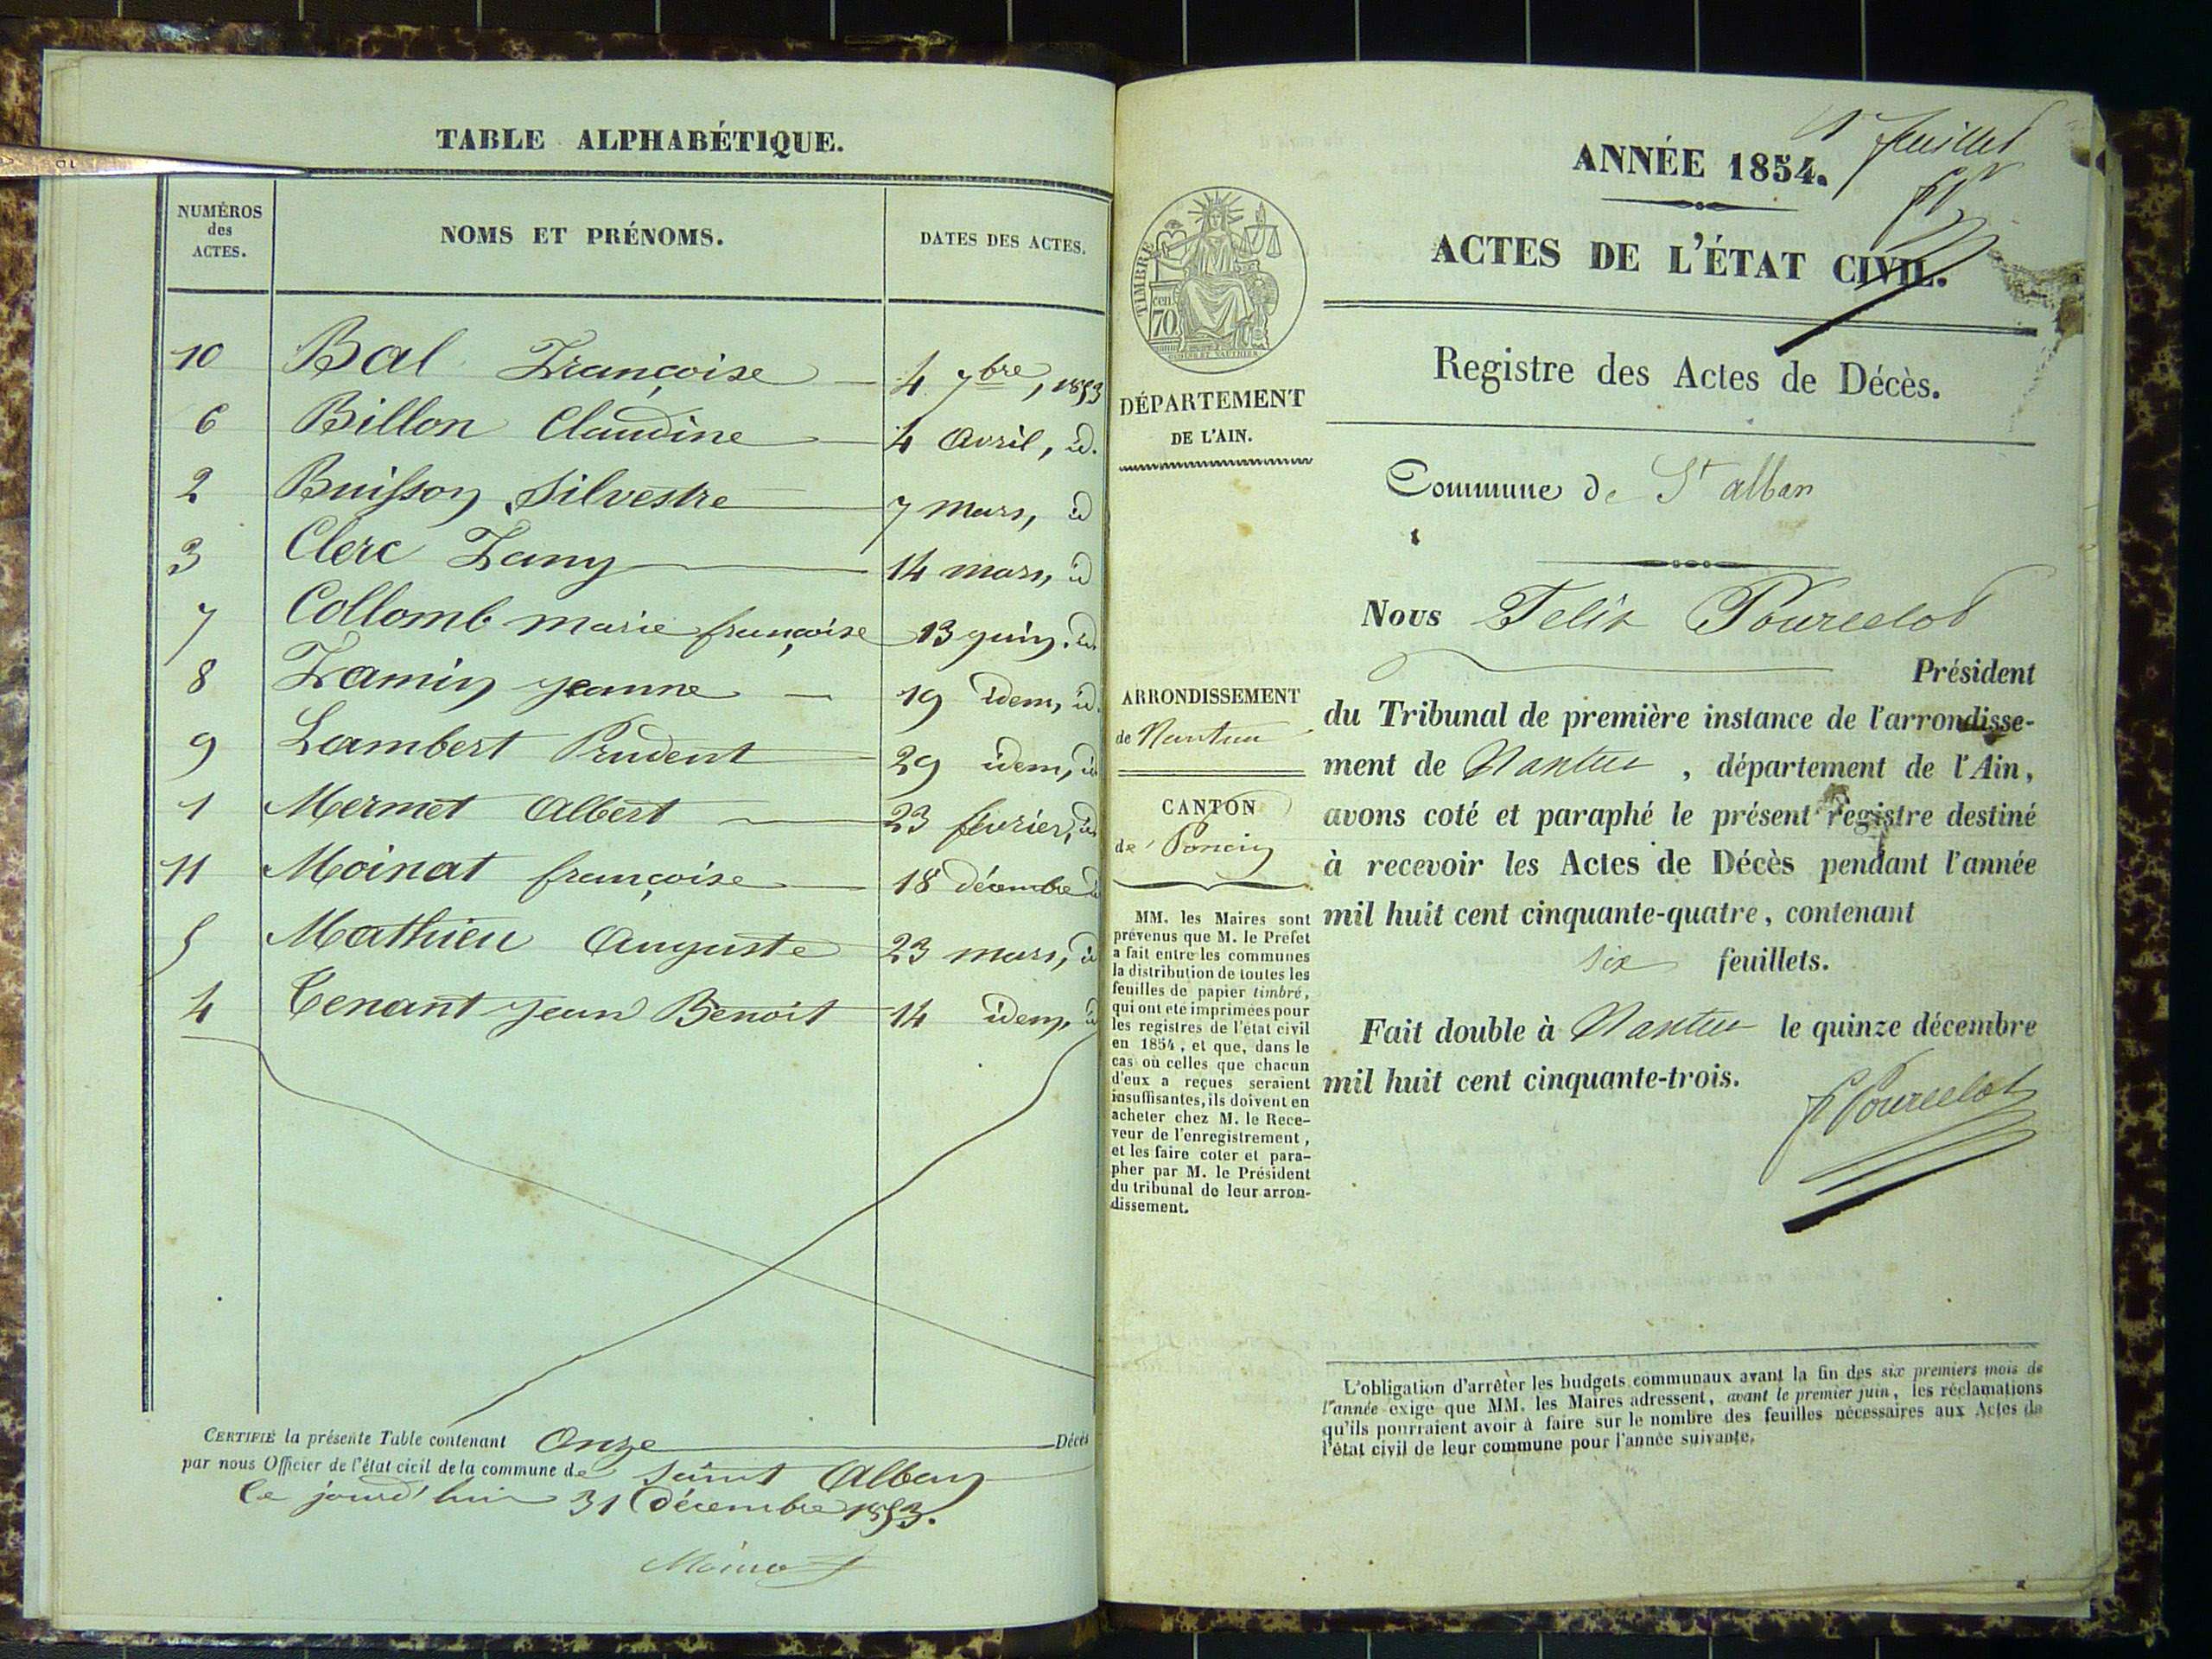 TABLE ALPHABÉTIQUE.
NUMÉROS
des
ACTES.
NOMS ET PRÉNOMS.
DATES DES ACTES.
10 Bal Françoise 4 7bre, 1853
6 Billon Claudine 4 Avril, id.
2 Buisson Silvestre 7 mars, id
3 Clerc Fany 14 mars, id
7 Collomb marie françoise 13 juin, id
8 Famin jeanne 19 idem, id.
9 Lambert Prudent 29 idem, id
1 Mermet Albert 23 février, id
11 Moinat françoise 18 décembre id
5 Mathieu Auguste 23 mars, id
4 Tenant jean Benoit 14 idem, id
CERTIFIÉ la présente Table contenant Onze Décès
par nous Officier de l'état civil de la commune de Saint Alban
Ce jourd'hui 31 Décembre 1853.
Moinat
1er feuillet
ANNÉE 1854.
ACTES DE L'ÉTAT CIVIL.
Registre des Actes de Décès.
TIMBRE
cen.
70
DÉPARTEMENT
DE L'AIN.
ARRONDISSEMENT
de Nantua
CANTON
de Poncin
MM. les Maires sont
prévenus que M. le Préfet
a fait entre les communes
la distribution de toutes les
feuilles de papier timbré,
qui ont été imprimées pour
les registres de l'état civil
en 1854, et que, dans le
cas où celles que chacun
d'eux a reçues seraient
insuffisantes, ils doivent en
acheter chez M. le Rece-
veur de l'enregistrement,
et les faire coter et para-
pher par M. le Président
du tribunal de leur arron-
dissement.
Commune de St alban
Nous Felix Pourcelot
Président
du Tribunal de première instance de l'arrondisse-
ment de Nantua, département de l'Ain,
avons coté et paraphé le présent registre destiné
à recevoir les Actes de Décès pendant l'année
mil huit cent cinquante-quatre, contenant
six feuillets.
Fait double à Nantua le quinze décembre
mil huit cent cinquante-trois.
F Pourcelot
L'obligation d'arrêter les budgets communaux avant la fin des six premiers mois de
l'année exige que MM. les Maires adressent, avant le premier juin, les réclamations
qu'ils pourraient avoir à faire sur le nombre des feuilles nécessaires aux Actes de
l'état civil de leur commune pour l'année suivante.